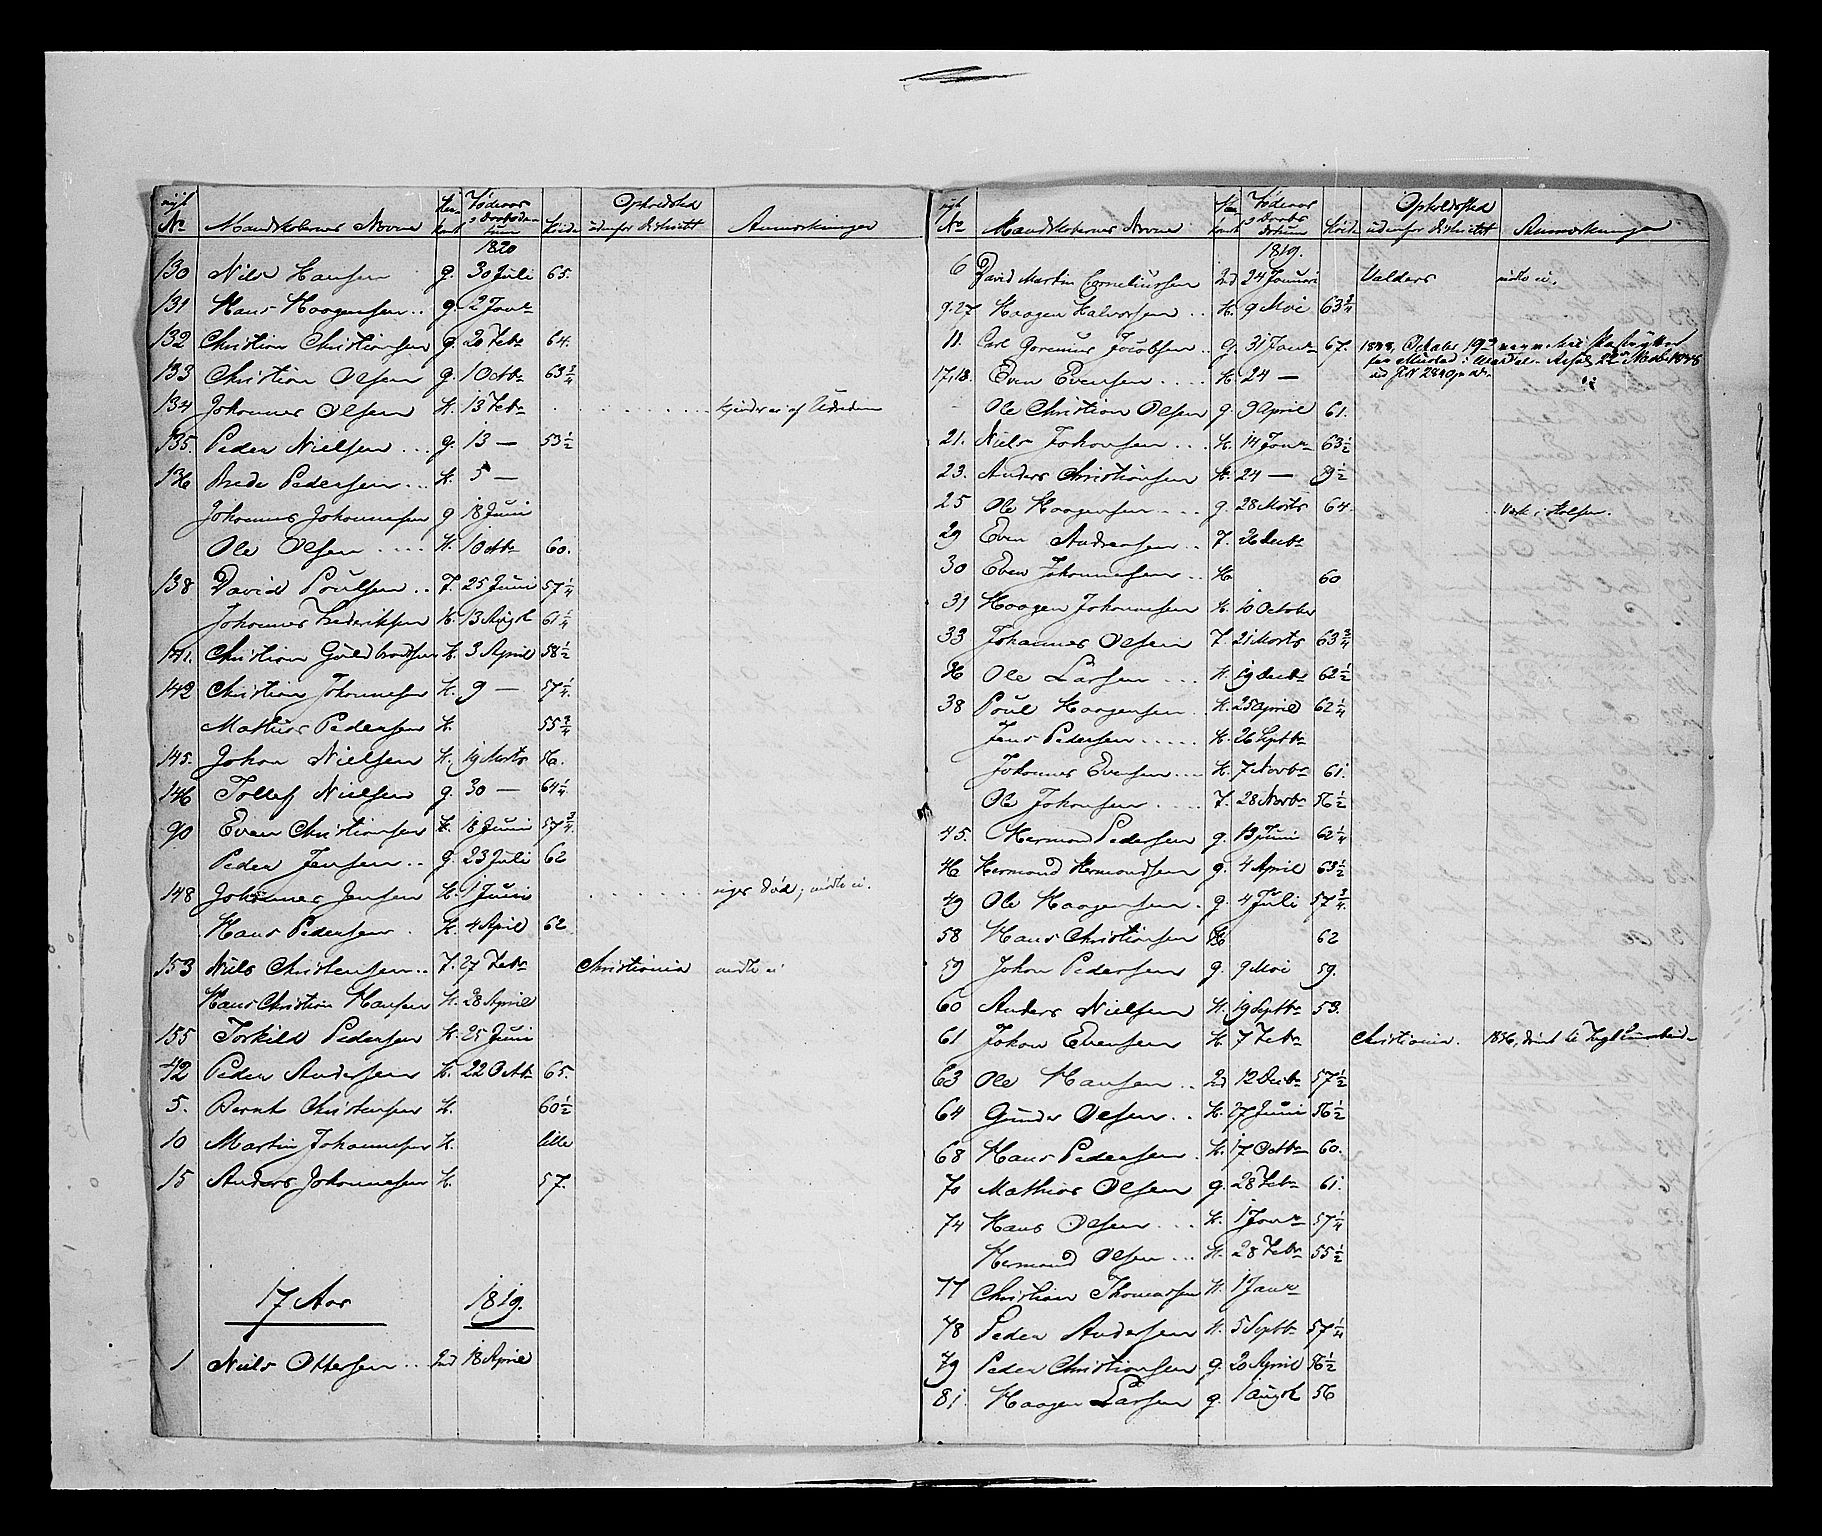 nye No Mandskabernes Navne Fødeaar Daabsdatum Høide Opholdsted udenfor districtet Anmærkninger
1820
130 Nils Hansen g. 30 Juli 65.
131 Hans Haagensen .. g. 2 Janr
132 Christian Christiansen g. 20 Febr 64.
133 Christian Olsen g. 1 Octbr 63 3/4
134 Johannes Olsen H. 13 Febr
135. Peder Nielsen ... g. 13 — 53 1/2
136 Brede Pedersen ... H. 5 —
Johannes Johannesen g 18 Juni
Ole Olsen .... H. 1 Octbr 60.
138 David Poulsen .. T. 25 Juni 57 1/4
Johannes Frederiksen H. 13 Augst 61 1/4
141. Christian Guldbrandsen H. 3 April 58 1/2
142 Christian Johannesen H. 9 — 57 1/4.
Mathias Pedersen H. 55 3/4
145. Johan Nielsen H. 19 Marts 56.
146 Tollef Nielsen g. 30 — 64 1/4
90 Even Christiansen H. 18 Juni 57 3/4.
Peder Jensen .. g. 23 Juli 62
148 Johannes Jensen H. 1 Juni siges død; mødte ei.
Hans Pedersen . H. 4 April 62
153 Niels Christensen .. T. 27 Febr Christiania mødte ei
Hans Christian Hansen H. 28 April
155 Torkild Pedersen H. 25 Juni
42 Peder Andersen H. 22 Octbr 65.
5. Bernt Christensen H. 60 1/2
10 Martin Johannesen H. lille
15 Anders Johannesen H. 57.
17 Aar 1819.
1 Niels Ottersen .. 2d 18 April
nye No Mandskabernes Navne Fødeaar Daabs datum Høide Opholdsted udenfor districtet Anmærkninger
1819.
6 David Martin Corneliussen 2d 24 Januari Valders mødte ei.
9.27 Haagen Halvorsen .. H. 9 Mai 63 3/4
11. Carl Jacobsen .. g. 31 Janr 67. 1838, October
17.18. Even Evensen .... H. 24 —
Ole Christian Olsen g. 9 April 61.
21. Niels Johansen ... H. 14 Janr 63 1/2
23. Anders Christiansen H. 24 — 59 1/2
25 Ole Haagensen .... g. 28 Marts 64.
29 Even Andersen .. T. 26 Decbr
30 Even Johannesen .. H. 60
31 Haagen Johannesen H. 10 October
33 Johannes Olsen T. 21 Marts 63 3/4
36 Ole Larsen ... H. 19 Decbr 62 1/2
38 Poul Haagensen . H. 25 April 62 1/4
Jens Pedersen ..... H. 26 Septbr
Johannes Evensen .... H. 7 Novbr 61.
Ole Johansen .... T. 28 Novbr 56 1/2
45. Hermand Pedersen g. 13 Juni 62 1/4
46 Hermand Hermandsen g. 4 April 63 1/2
49 Ole Haagensen . g. 4 Juli 57 3/4.
58 Hans Christiansen H. 62
59 Johan Pedersen g. 9 Mai 59.
60 Anders Nielsen H. 19 Septbr 53.
61 Johan Evensen H. 7 Febr Christiania. 1836,
63 Ole Hansen .. 2d 12 Decbr 57 1/2
64 Gunder Olsen .. H. 27 Juni 56 1/2
68 Hans Pedersen . H. 17 Octbr 60.
70 Mathias Olsen g. 28 Febr 61.
74 Hans Olsen ... H. 1 Janr 57 1/4
Hermand Olsen ... H. 28 Febr 55 1/2
77 Christian Thomassen H. 1 Janr
78 Peder Andersen H. 5 Septbr 57 1/4
79 Peder Christiansen g. 20 April 56 1/2
81. Haagen Larsen g. 1 Augst 56